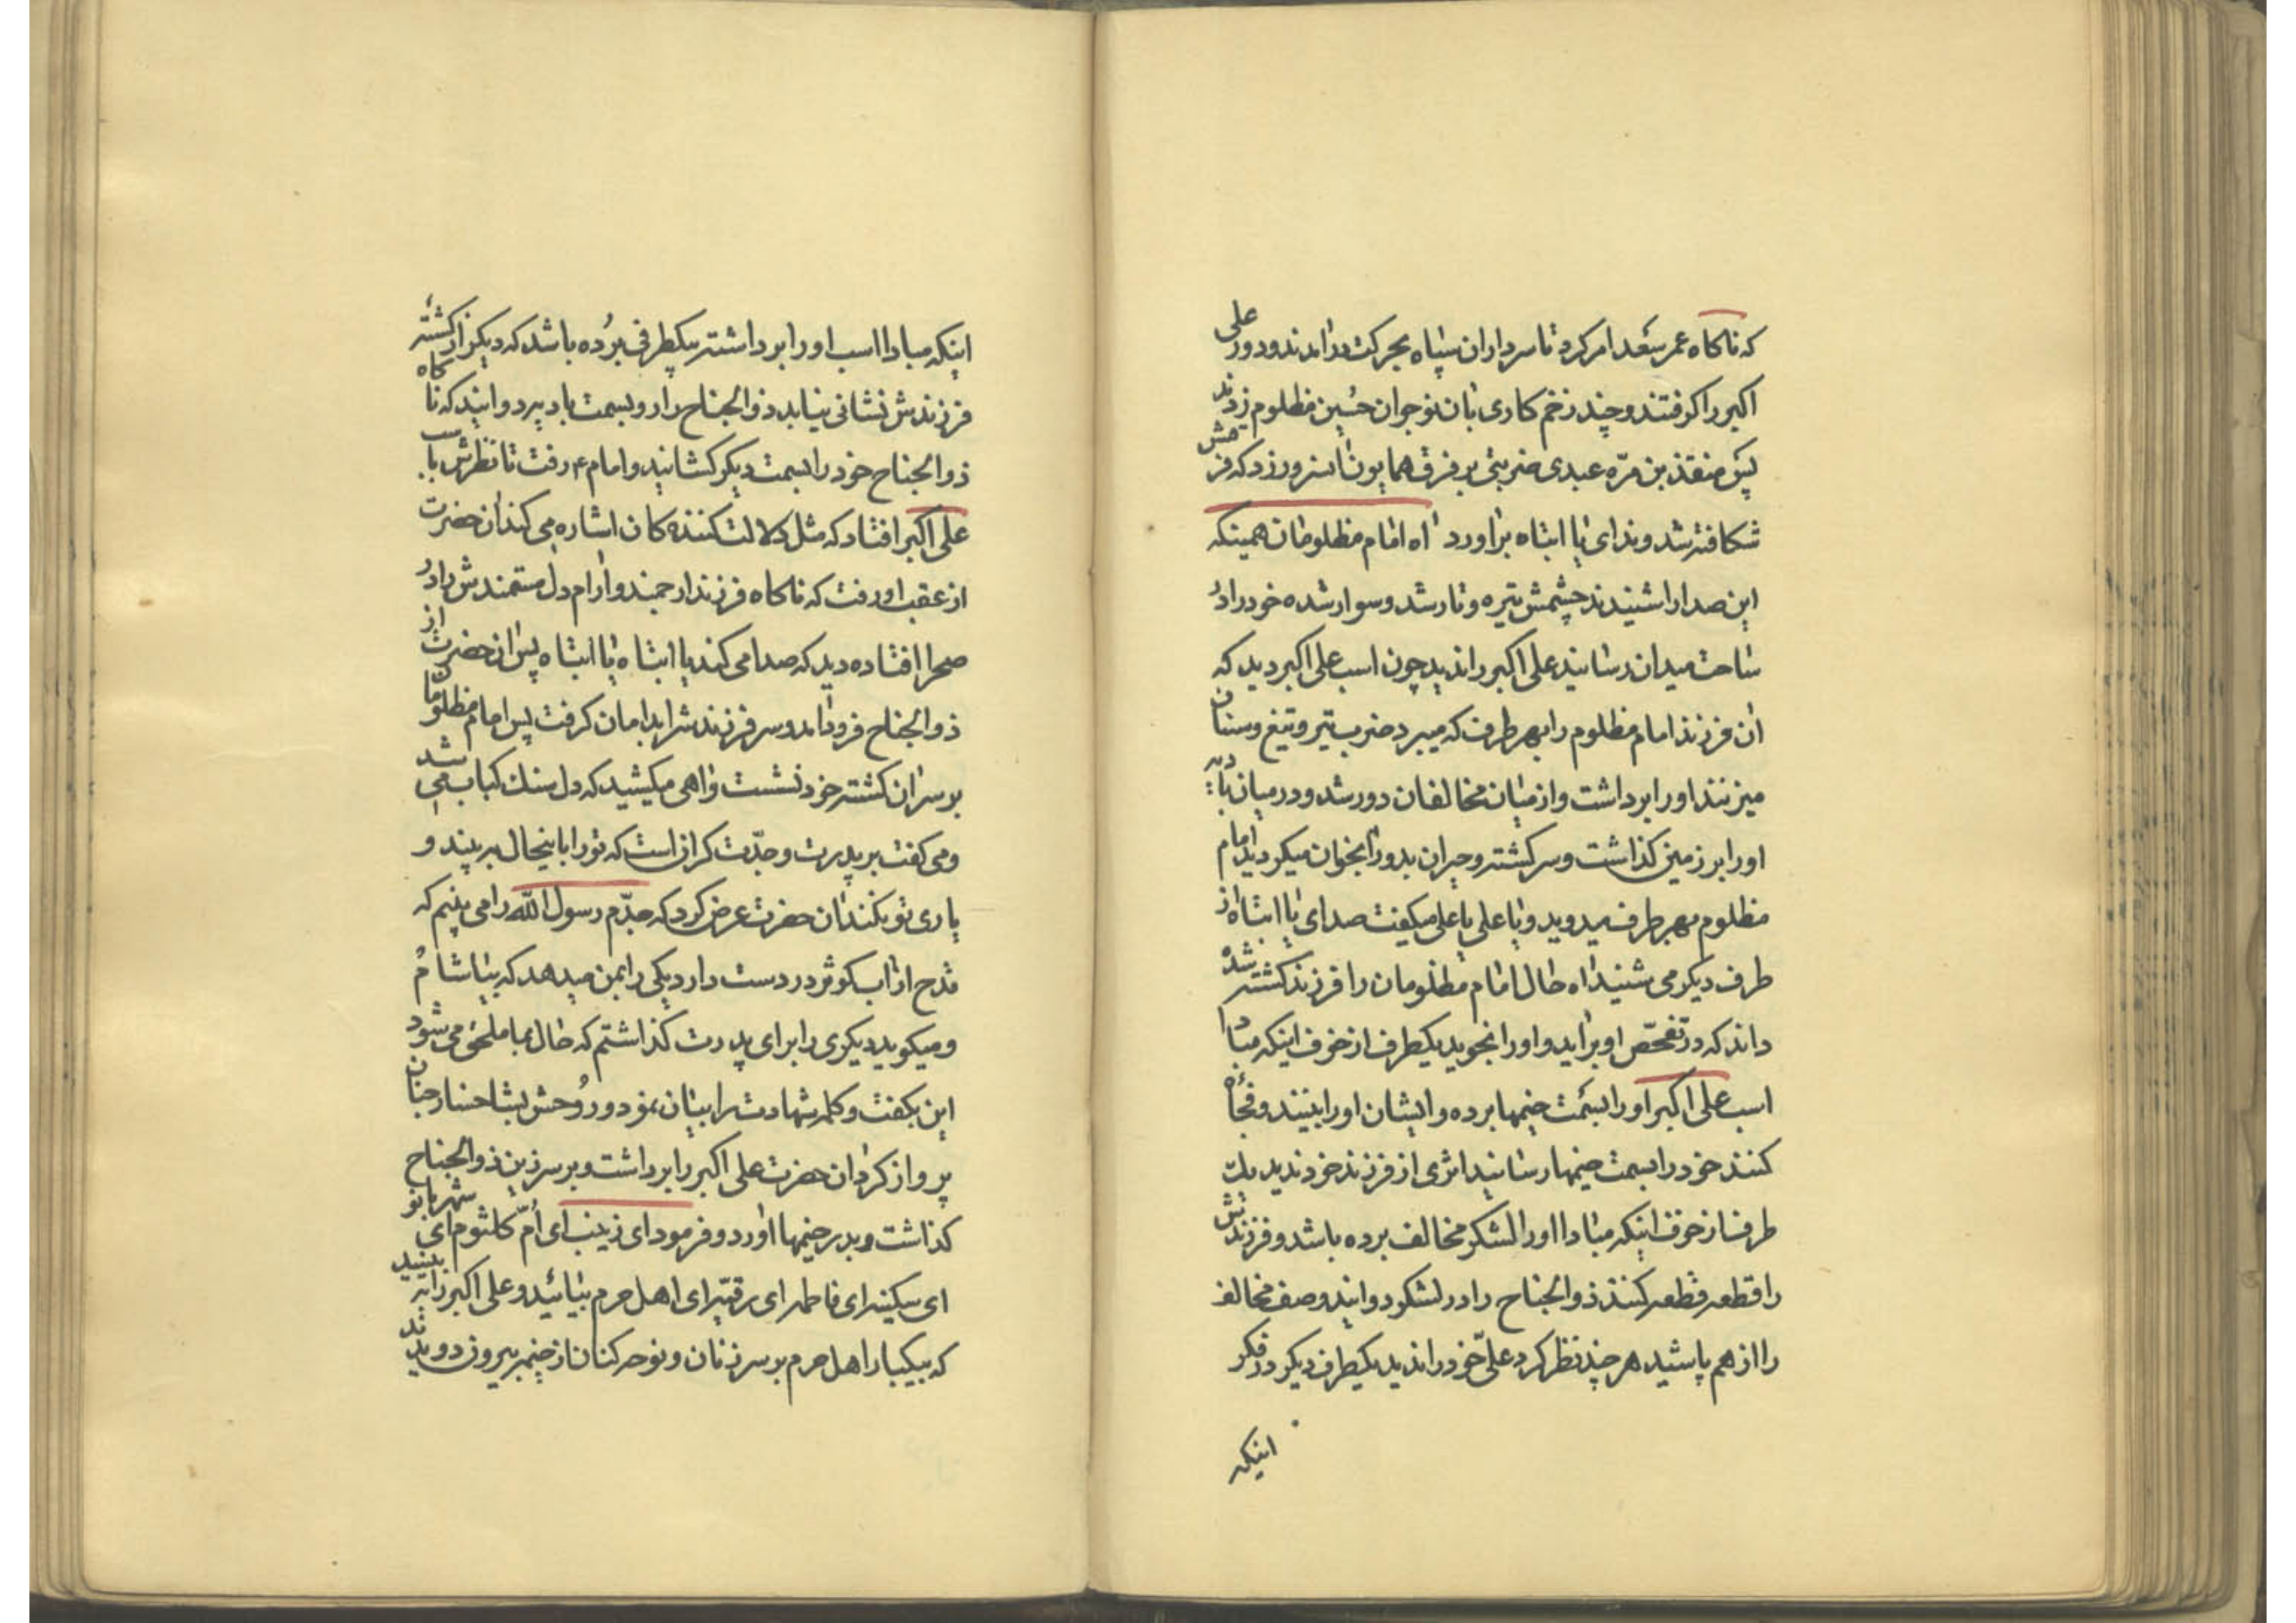 که ناکاه عمر سعد امر کرد تا سرداران سپاه بحرکت درامدند و دور علی
اکبر را کرفتند و چند زخم کاری بان نوجوان حسین مظلوم زدند
پس منقذ بن مرّه عبدی ضربتی بر فرق همایون ان سرور زد که فرقش
شکافته شد و ندای یا ابتاه براورد اه امام مظلومان همینکه
این صدا را شنیدند چشمش تیره و تار شد و سوار شده خود را در
ساحت میدان رسانید علی اکبر را ندید چون اسب علی اکبر دید که
ان فرزند امام مظلوم را بهر طرف که میبرد ضرب تیر و تیغ و سنان
میزنند او را برداشت و از میان مخالفان دور شد و در میان بادیه
او را بر زمین کذاشت و سرکشته و حیران بدور انجوان میکردید امام
مظلوم بهر طرف میدوید و یا علی یا علی میکفت صدای یا ابتاه از
طرف دیکر می شنید اه حال امام مظلومان را فرزند کشته شده
داند که در تفحّص او براید و او را نجوید یکطرف از خوف اینکه مبادا
اسب علی اکبر او را بسمت خیمها برده و ایشان او را ببینند و فجأه
کنند خود را بسمت خیمها رسانید اثری از فرزند خود ندید یک
طرف از خوف اینکه مبادا او را لشکر مخالف برده باشد و فرزندش
را قطعه قطعه کنند ذوالجناح را در لشکر دوانید و صف مخالف
را از هم پاشید هر چند نظر کرد علیّ خود را ندید یکطرف دیکر در فکر
اینکه
اینکه مبادا اسب او را برداشته بیکطرفی برده باشد که دیکر از کشتهٔ
فرزندش نشانی نیابد ذوالجناح را رو بسمت بادیه دوانید که ناکاه
ذوالجناح خود را بسمت دیکر کشانید و امام ع رفت تا نظرش باسب
علی اکبر افتاد که مثل دلالت کننده کان اشاره می کند ان حضرت
از عقب او رفت که ناکاه فرزند ارجمند و ارام دل مستمندش را در
صحرا افتاده دید که صدا می کند یا ابتاه یا ابتاه پس ان حضرت از
ذوالجناح فرود امد و سر فرزندش را بدامان کرفت پس امام مظلومان
بر سر ان کشته خود نشست و اهی میکشید که دل سنک کباب می شد
و می کفت بر پدرت و جدّت کران است که تو را باینحال ببیند و
یاری تو نکنند ان حضرت عرض کرد که جدّم رسول الله را می بینم که
قدح از اب کوثر در دست دارد یکی را بمن میدهد که بیاشام
و میکوید دیکری را برای پدرت کذاشتم که حال بما ملحق می شود
این بکفت و کلمه شهادت را بیان نمود و روحش بشاخسار جنان
پرواز کرد ان حضرت علی اکبر را برداشت و بر سر زین ذوالجناح
کذاشت و بدر خیمها اورد و فرمود ای زینب ای امّ کلثوم ای شهربانو
ای سکینه ای فاطمه ای رقیّه ای اهل حرم بیائید و علی اکبر را ببینید
که بیکبار اهل حرم بر سر زنان و نوحه کنان از خیمه بیرون دویدند